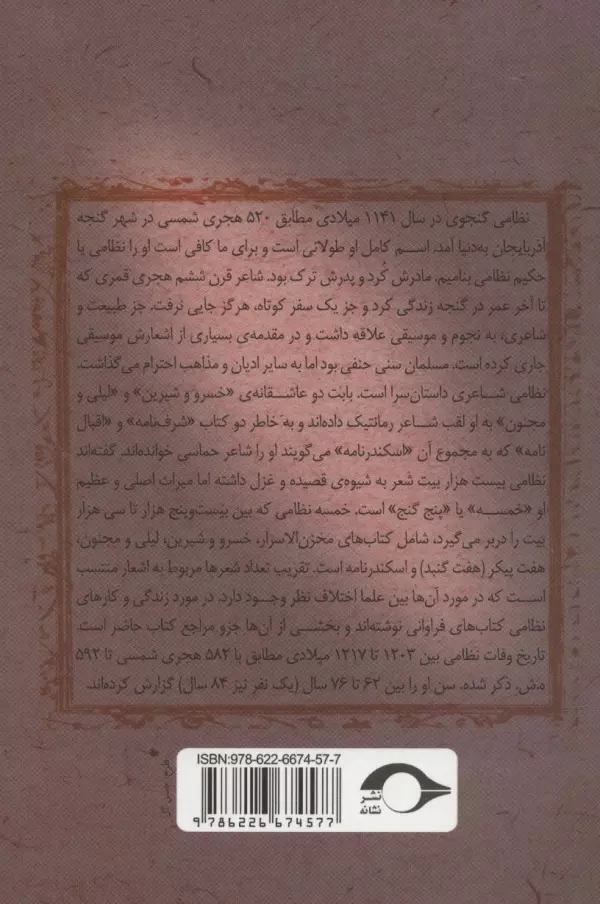 نظامی گنجوی در سال ۱۱۴۱ میلادی مطابق ۵۲۰ هجری شمسی در شهر گنجه
آذربایجان به‌دنیا آمد. اسم کامل او طولانی است و برای ما کافی است او را نظامی یا
حکیم نظامی بنامیم. مادرش کُرد و پدرش ترک بود. شاعر قرن ششم هجری قمری که
تا آخر عمر در گنجه زندگی کرد و جز یک سفر کوتاه، هرگز جایی نرفت. جز طبیعت و
شاعری، به نجوم و موسیقی علاقه داشت و در مقدمه‌ی بسیاری از اشعارش موسیقی
جاری کرده است. مسلمان سنی حنفی بود اما به سایر ادیان و مذاهب احترام می‌گذاشت.
نظامی شاعری داستان‌سرا است. بابت دو عاشقانه‌ی «خسرو و شیرین» و «لیلی و
مجنون» به او لقب شاعر رمانتیک داده‌اند و به خاطر دو کتاب «شرف‌نامه» و «اقبال
نامه» که به مجموع آن «اسکندرنامه» می‌گویند او را شاعر حماسی خوانده‌اند. گفته‌اند
نظامی بیست هزار بیت شعر به شیوه‌ی قصیده و غزل داشته اما میراث اصلی و عظیم
او «خمسه» یا «پنج گنج» است. خمسه نظامی که بین بیست‌وپنج هزار تا سی هزار
بیت را دربر می‌گیرد، شامل کتاب‌های مخزن‌الاسرار، خسرو و شیرین، لیلی و مجنون،
هفت پیکر (هفت گنبد) و اسکندرنامه است. تقریب تعداد شعرها مربوط به اشعار منتسب
است که در مورد آن‌ها بین علما اختلاف نظر وجود دارد. در مورد زندگی و کارهای
نظامی کتاب‌های فراوانی نوشته‌اند و بخشی از آن‌ها جزو مراجع کتاب حاضر است.
تاریخ وفات نظامی بین ۱۲۰۳ تا ۱۲۱۷ میلادی مطابق با ۵۸۲ هجری شمسی تا ۵۹۲
ه‍.ش. ذکر شده. سن او را بین ۶۲ تا ۷۶ سال (یک نفر نیز ۸۴ سال) گزارش کرده‌اند.
ISBN:978-622-6674-57-7
9 786226 674577
نشر
نشانه